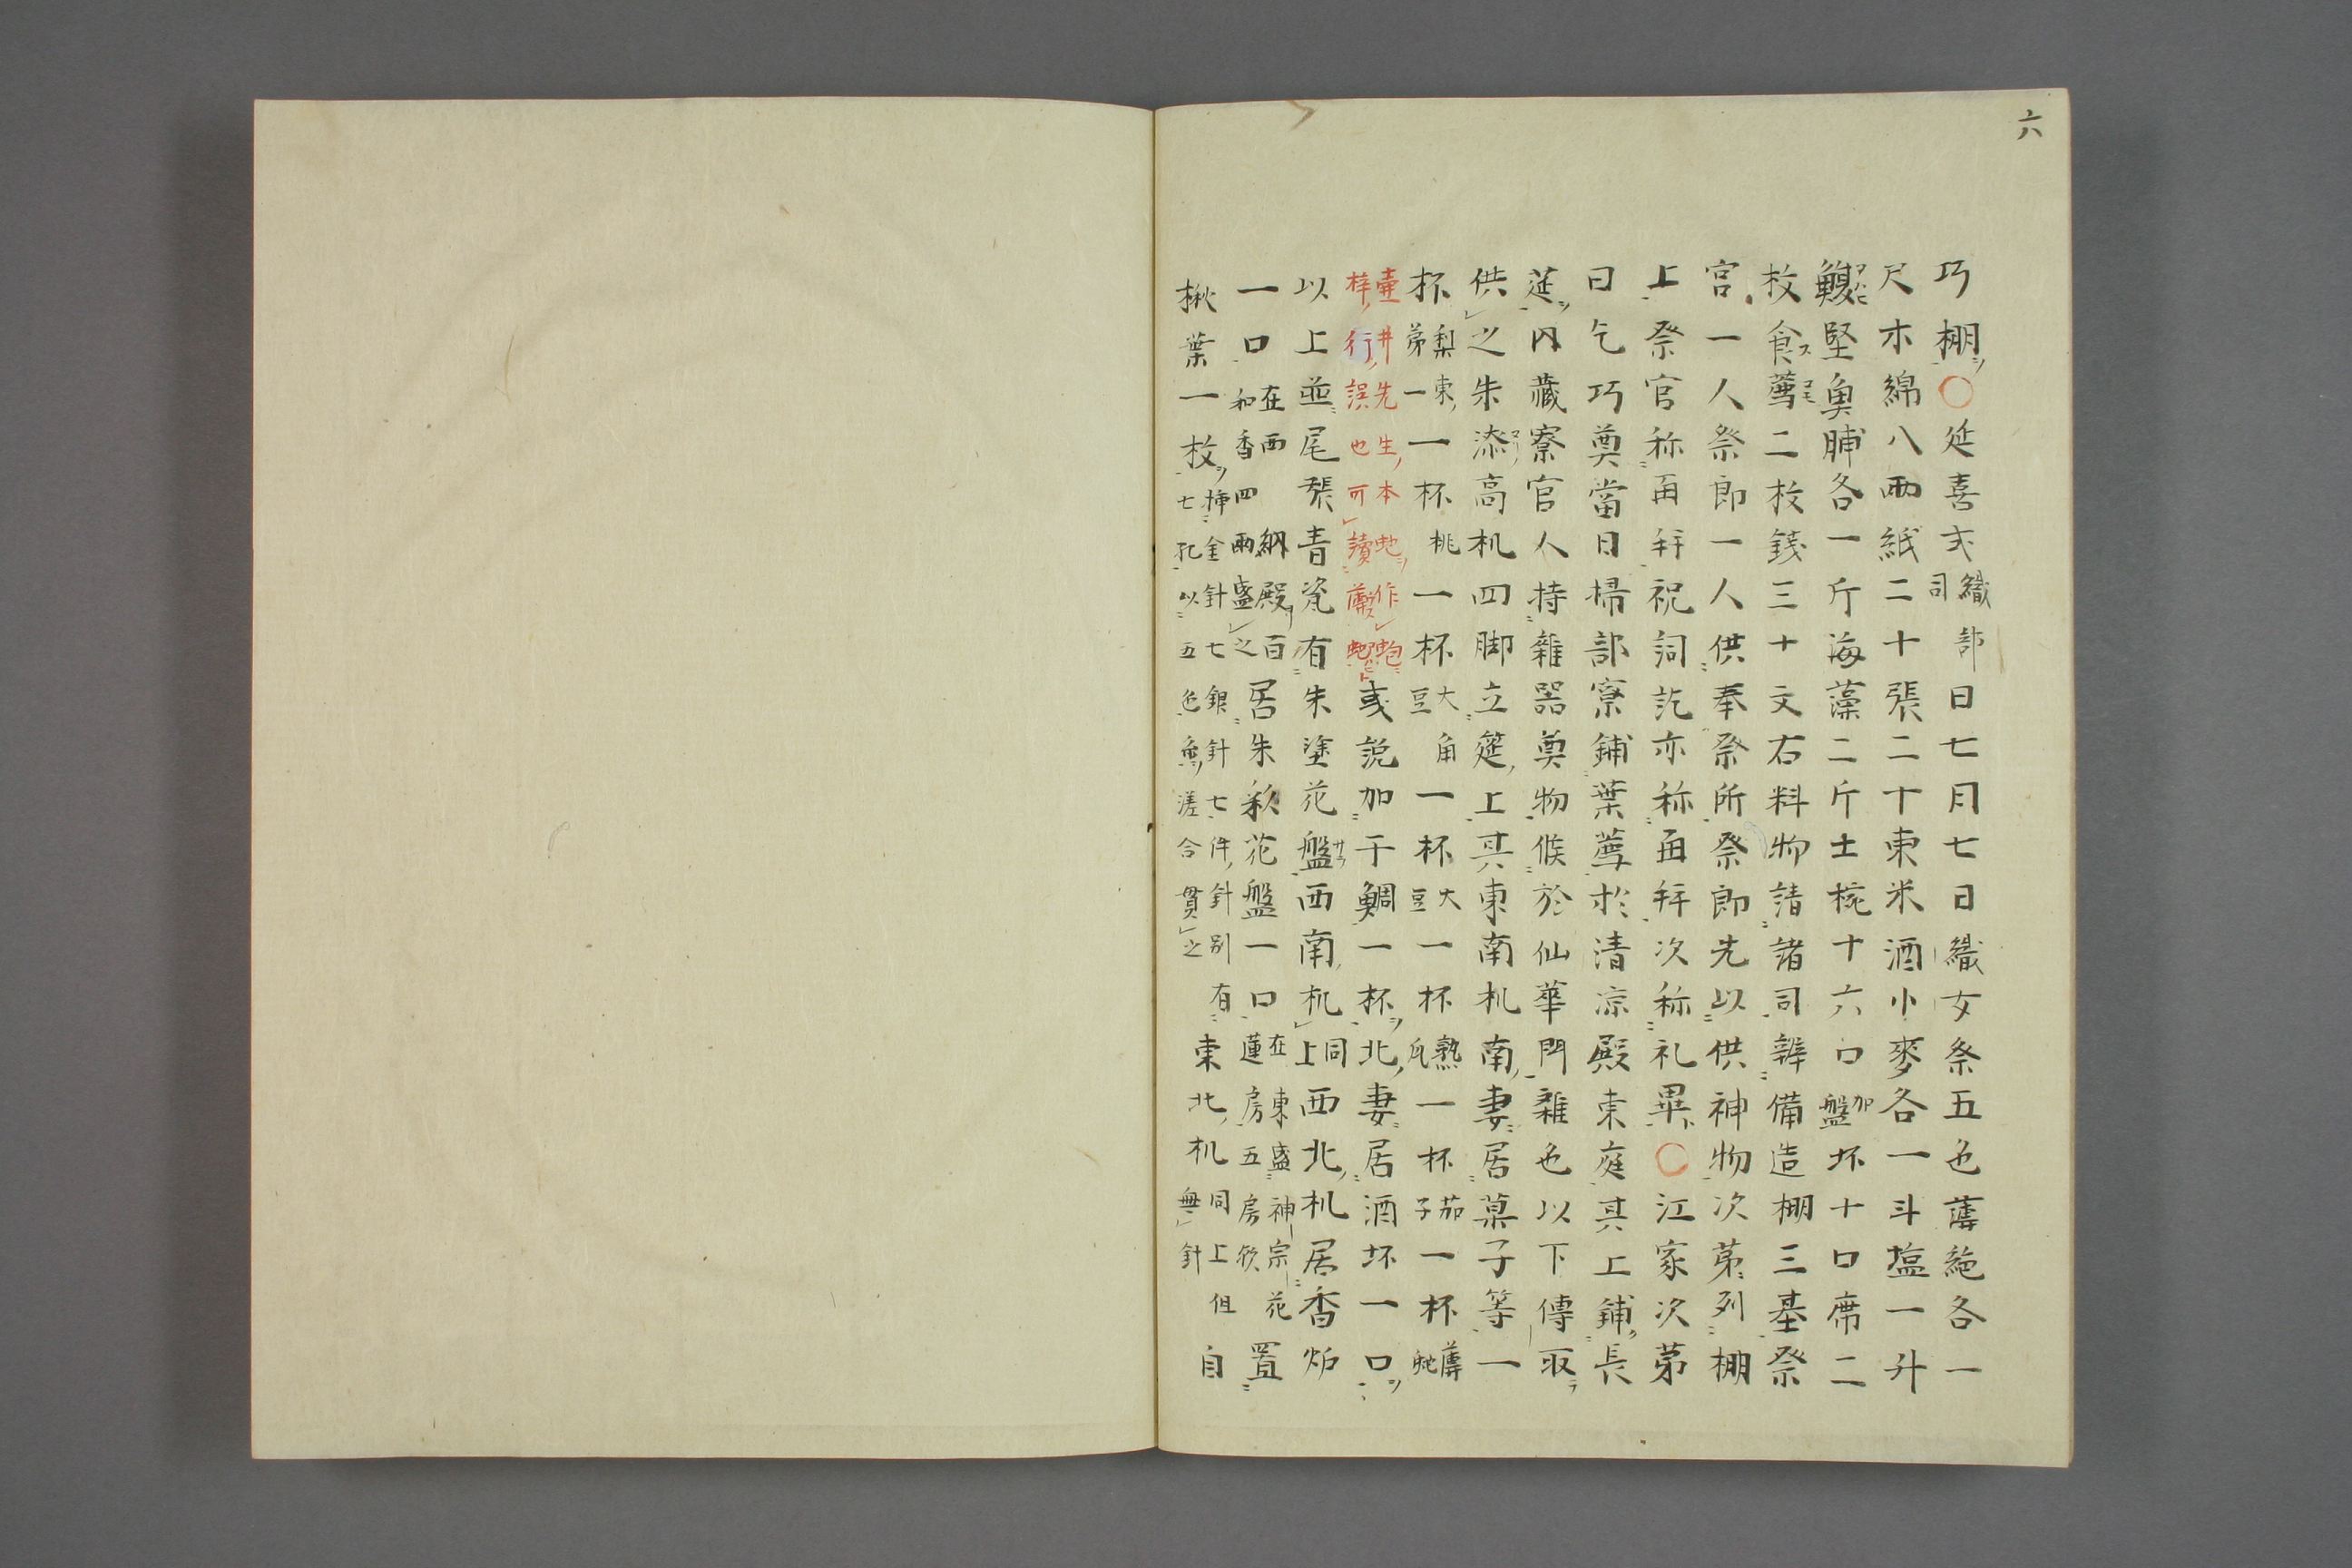 六
巧棚ヲ○延喜式織部司曰七月七日織女祭五色薄絁各一
尺木綿八兩紙二十張二十束米酒小麥各一斗塩一升
鰒アハヒ堅奠脯各一斤海藻二斤土椀十六口加盤坏十口席二
枚食ス薦コモ二枚錢三十文右料物請諸司辨備造棚三基祭
官一人祭郎一人供奉祭所祭郎先以供神物次苐列棚
上祭官称再拜祝詞訖亦称再拜次称礼畢ト○江家次苐
曰乞巧奠當日掃部寮鋪葉薦於清凉殿東庭其上鋪長
莚ヲ内藏寮官人持雜器奠物候於仙華門雜色以下傳取
供之朱漆高机四脚立筵上其東南机南妻居菓子等一
杯梨東苐一一杯桃一杯大角豆一杯大豆一杯熟瓜一杯茄子一杯薄鮑
壷井先生本虵ヲ作鮑梓行誤也可讀薄虵或説加干鯛一杯ヲ北妻居酒坏一口ヲ
以上並尾張青瓷有朱塗花盤サラ西南机同上西北机居香炉
一口在西納殿百和香四兩盛之居朱彩花盤一口在東盛神宗花蓮房五房欤置
楸葉一枚ヲ揷金針七銀針七件針別有七孔以五色絲ヲ差合貫之東北机同上但無針自